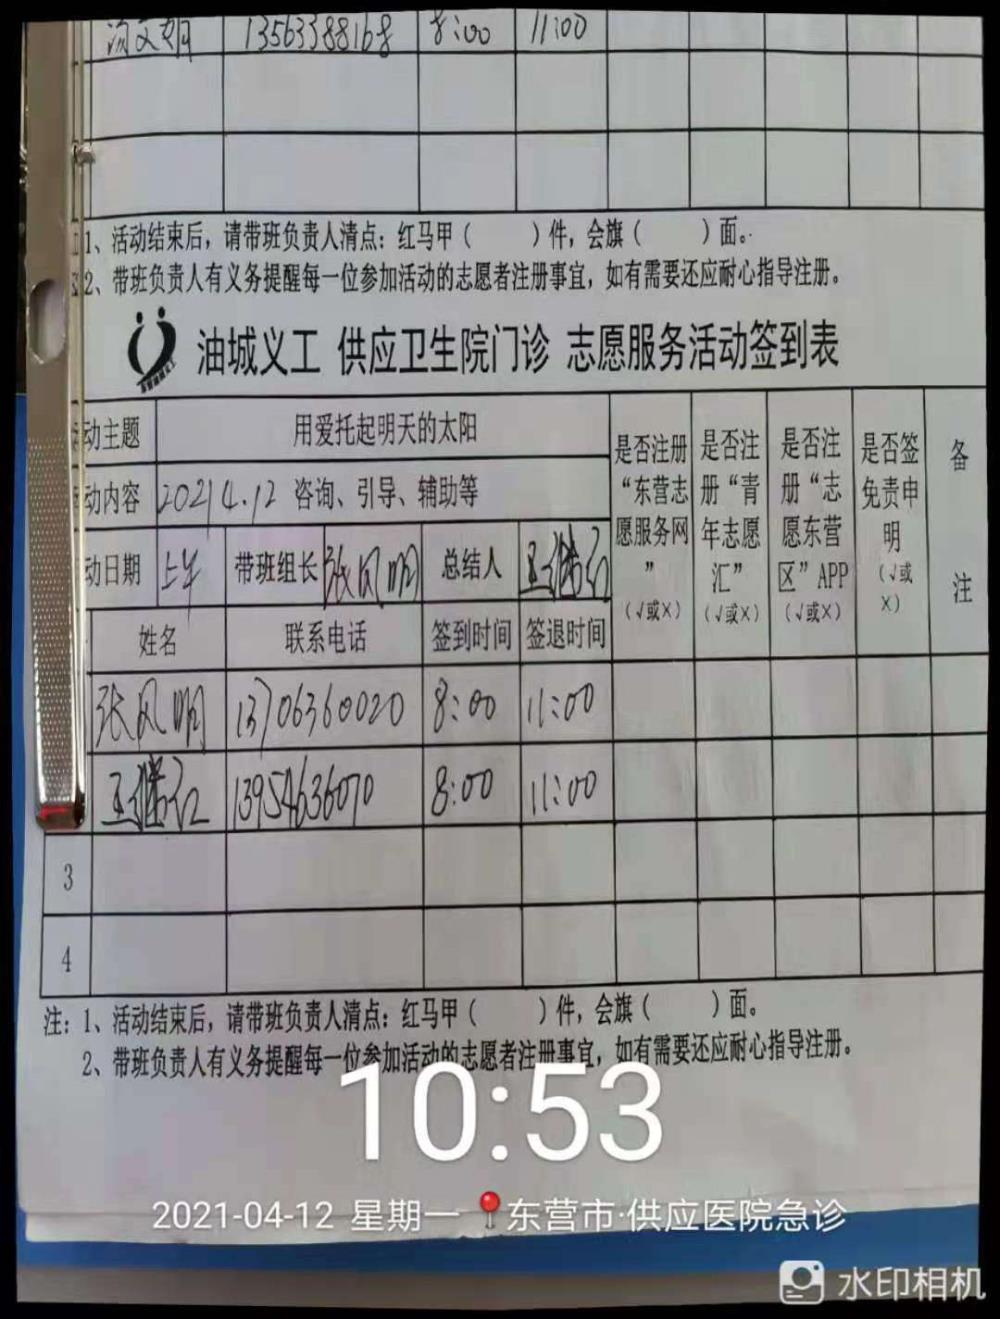 文明 13563388168 8:00 11:00
1、活动结束后，请带班负责人清点：红马甲（ ）件，会旗（ ）面。
2、带班负责人有义务提醒每一位参加活动的志愿者注册事宜，如有需要还应耐心指导注册。
油城义工 供应卫生院门诊 志愿服务活动签到表
动主题 用爱托起明天的太阳 是否注册“东营志愿服务网”（√或X） 是否注册“青年志愿汇”（√或X） 是否注册“志愿东营区”APP（√或X） 是否签免责申明（√或X） 备注
动内容 2021 4.12 咨询、引导、辅助等
动日期 上午 带班组长 张风明 总结人 王继红
姓名 联系电话 签到时间 签退时间
张风明 13706360020 8:00 11:00
王继红 13954636070 8:00 11:00
3
4
注：1、活动结束后，请带班负责人清点：红马甲（ ）件，会旗（ ）面。
2、带班负责人有义务提醒每一位参加活动的志愿者注册事宜，如有需要还应耐心指导注册。
10:53
2021-04-12 星期一 东营市·供应医院急诊
水印相机